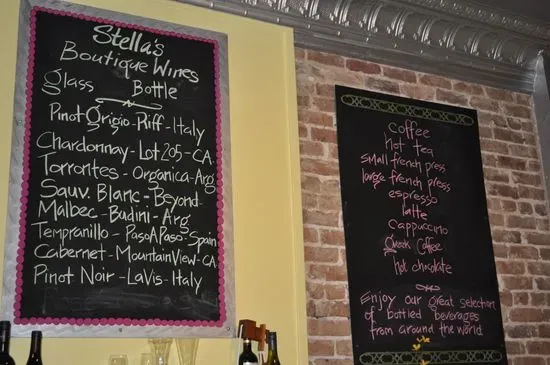 Stella's
Boutique Wines
glass Bottle
Pinot Grigio-Riff-Italy
Chardonnay-Lot 205-CA.
Torrontes-Organica-Arg
Sauv. Blanc-Beyond-
Malbec-Budini-Arg
Tempranillo-PasoAPaso-Spain
Cabernet-MountainView-CA
Pinot Noir-LaVis-Italy
coffee
hot tea
small french press
large french press
espresso
latte
cappuccino
Coffee
hot chocolate
Enjoy our great selection
of bottled beverages
from around the world